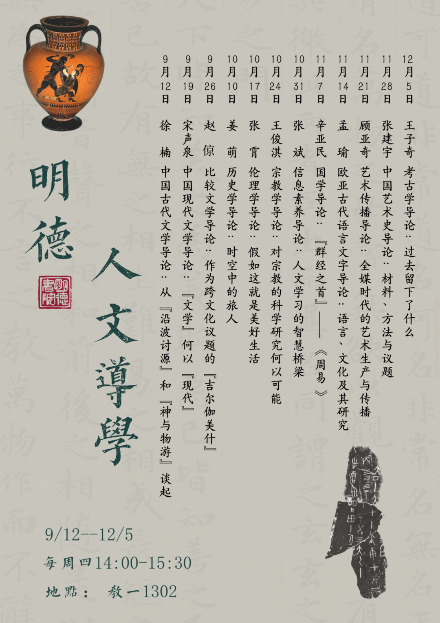 明德
人文導學
9月12日 徐楠 中国古代文学导论：从『沿波讨源』和『神与物游』谈起
9月19日 宋声泉 中国现代文学导论：『文学』何以『现代』
9月26日 赵倞 比较文学导论：作为跨文化议题的『吉尔伽美什』
10月10日 姜萌 历史学导论：时空中的旅人
10月17日 张霄 伦理学导论：假如这就是美好生活
10月24日 王俊淇 宗教学导论：对宗教的科学研究何以可能
10月31日 张斌 信息素养导论：人文学习的智慧桥梁
11月7日 辛亚民 国学导论：『群经之首』——《周易》
11月14日 孟瑜 欧亚古代语言文字导论：语言、文化及其研究
11月21日 顾亚奇 艺术传播导论：全媒时代的艺术生产与传播
11月28日 张建宇 中国艺术史导论：材料、方法与议题
12月5日 王子奇 考古学导论：过去留下了什么
9/12--12/5
每周四14:00-15:30
地點： 教一1302